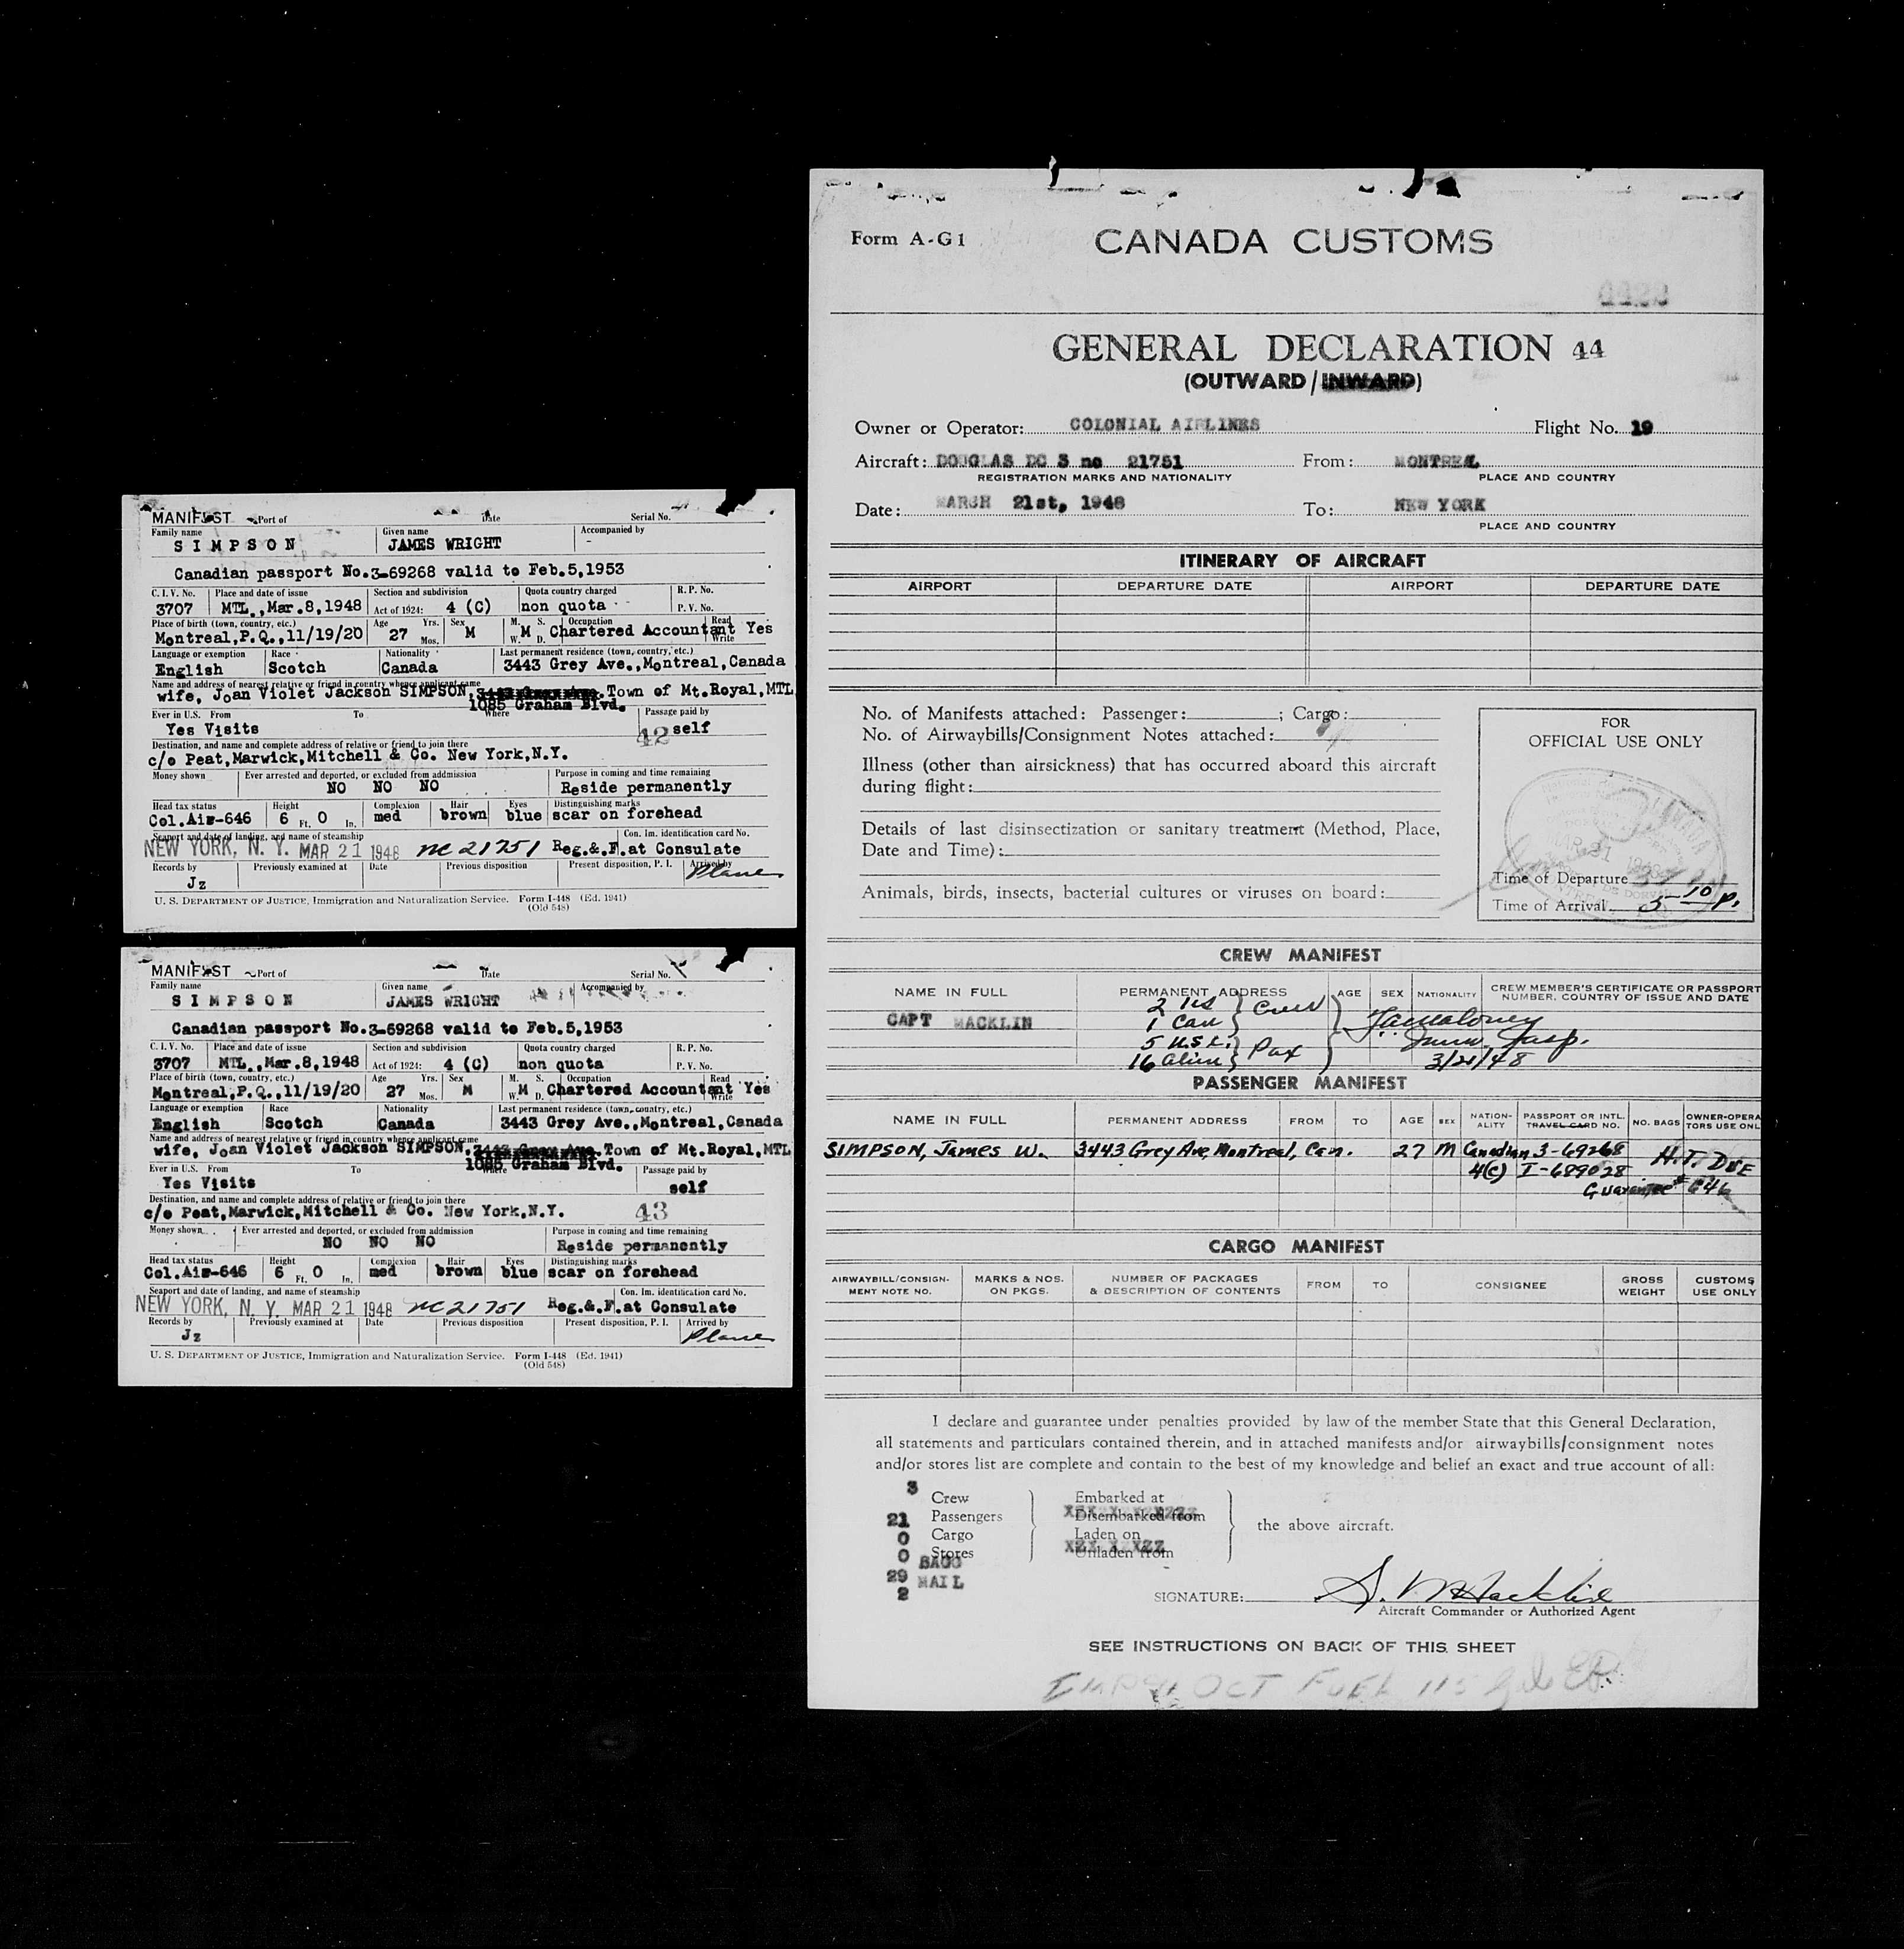 MANIFEST Port of Date Serial No.
Family name Given name Accompanied by
SIMPSON JAMES WRIGHT -
Canadian passport No.3-69268 valid to Feb.5,1953
C. I. V. No. Place and date of issue Section and subdivision Quota country charged R. P. No.
3707 MTL.,Mar.8,1948 Act of 1924: 4 (C) non quota P. V. No.
Place of birth (town, country, etc.) Age Yrs. Sex M. S. Occupation Read
Montreal,P.Q.,11/19/20 27 Mos. M W. M D. Chartered Accountant Write Yes
Language or exemption Race Nationality Last permanent residence (town, country, etc.)
English Scotch Canada 3443 Grey Ave.,Montreal,Canada
Name and address of nearest relative or friend in country whence applicant came
wife, Joan Violet Jackson SIMPSON, 3443 Grey Ave. Town of Mt.Royal,MTL
1085 Graham Blvd.
Ever in U.S. From To Where Passage paid by
Yes Visits 42 self
Destination, and name and complete address of relative or friend to join there
c/o Peat,Marwick,Mitchell & Co. New York,N.Y.
Money shown Ever arrested and deported, or excluded from addmission Purpose in coming and time remaining
NO NO NO Reside permanently
Head tax status Height Complexion Hair Eyes Distinguishing marks
Col.Air-646 6 Ft. 0 In. med brown blue scar on forehead
Seaport and date of landing, and name of steamship Con. Im. identification card No.
NEW YORK, N. Y. MAR 21 1948 nc 21751 Reg.&.F.at Consulate
Records by Previously examined at Date Previous disposition Present disposition, P. I. Arrived by
Jz Plane
U. S. DEPARTMENT OF JUSTICE, Immigration and Naturalization Service. Form I-448 (Ed. 1941)
(Old 548)
MANIFEST Port of Date Serial No.
Family name Given name Accompanied by
SIMPSON JAMES WRIGHT
Canadian passport No.3-69268 valid to Feb.5,1953
C. I. V. No. Place and date of issue Section and subdivision Quota country charged R. P. No.
3707 MTL.,Mar.8,1948 Act of 1924: 4 (C) non quota P. V. No.
Place of birth (town, country, etc.) Age Yrs. Sex M. S. Occupation Read
Montreal,P.Q.,11/19/20 27 Mos. M W. M D. Chartered Accountant Write Yes
Language or exemption Race Nationality Last permanent residence (town, country, etc.)
English Scotch Canada 3443 Grey Ave.,Montreal,Canada
Name and address of nearest relative or friend in country whence applicant came
wife, Joan Violet Jackson SIMPSON, 3443 Grey Ave. Town of Mt.Royal,MTL
1085 Graham Blvd.
Ever in U.S. From To Where Passage paid by
Yes Visits self
Destination, and name and complete address of relative or friend to join there
c/o Peat,Marwick,Mitchell & Co. New York,N.Y. 43
Money shown Ever arrested and deported, or excluded from addmission Purpose in coming and time remaining
NO NO NO Reside permanently
Head tax status Height Complexion Hair Eyes Distinguishing marks
Col.Air-646 6 Ft. 0 In. med brown blue scar on forehead
Seaport and date of landing, and name of steamship Con. Im. identification card No.
NEW YORK, N. Y. MAR 21 1948 nc 21751 Reg.&.F.at Consulate
Records by Previously examined at Date Previous disposition Present disposition, P. I. Arrived by
Jz Plane
U. S. DEPARTMENT OF JUSTICE, Immigration and Naturalization Service. Form I-448 (Ed. 1941)
(Old 548)
Form A-G1 CANADA CUSTOMS
GENERAL DECLARATION 44
(OUTWARD/INWARD)
Owner or Operator: COLONIAL AIRLINES Flight No. 19
Aircraft: DOUGLAS DC 3 nc 21751 From: MONTREAL
REGISTRATION MARKS AND NATIONALITY PLACE AND COUNTRY
Date: MARCH 21st, 1948 To: NEW YORK
PLACE AND COUNTRY
ITINERARY OF AIRCRAFT
AIRPORT DEPARTURE DATE AIRPORT DEPARTURE DATE
No. of Manifests attached: Passenger: ; Cargo:
No. of Airwaybills/Consignment Notes attached:
Illness (other than airsickness) that has occurred aboard this aircraft
during flight:
Details of last disinsectization or sanitary treatment (Method, Place,
Date and Time):
Animals, birds, insects, bacterial cultures or viruses on board:
FOR
OFFICIAL USE ONLY
MAR 21 1948
Time of Departure
Time of Arrival 5 10 P.
CREW MANIFEST
NAME IN FULL PERMANENT ADDRESS AGE SEX NATIONALITY CREW MEMBER'S CERTIFICATE OR PASSPORT
NUMBER, COUNTRY OF ISSUE AND DATE
2 US
CAPT MACKLIN 1 Can } Crew
5 U.S.C.
16 alien } Pax
Immn. Insp.
3/21/48
PASSENGER MANIFEST
NAME IN FULL PERMANENT ADDRESS FROM TO AGE SEX NATION-ALITY PASSPORT OR INTL. TRAVEL CARD NO. NO. BAGS OWNER-OPERA TORS USE ONL
SIMPSON, James W. 3443 Grey Ave Montreal, Can. 27 M Canadian 3-69268 H.T. DUE
4(c) I-689028
Guarantee # 646
CARGO MANIFEST
AIRWAYBILL/CONSIGN-MENT NOTE NO. MARKS & NOS. ON PKGS. NUMBER OF PACKAGES & DESCRIPTION OF CONTENTS FROM TO CONSIGNEE GROSS WEIGHT CUSTOMS USE ONLY
I declare and guarantee under penalties provided by law of the member State that this General Declaration,
all statements and particulars contained therein, and in attached manifests and/or airwaybills/consignment notes
and/or stores list are complete and contain to the best of my knowledge and belief an exact and true account of all:
3 Crew Embarked at
21 Passengers Disembarked from
0 Cargo Laden on the above aircraft.
0 Stores Unladen from
29 BAGG
2 MAIL
SIGNATURE: S. Macklin
Aircraft Commander or Authorized Agent
SEE INSTRUCTIONS ON BACK OF THIS SHEET
OCT FUEL 115